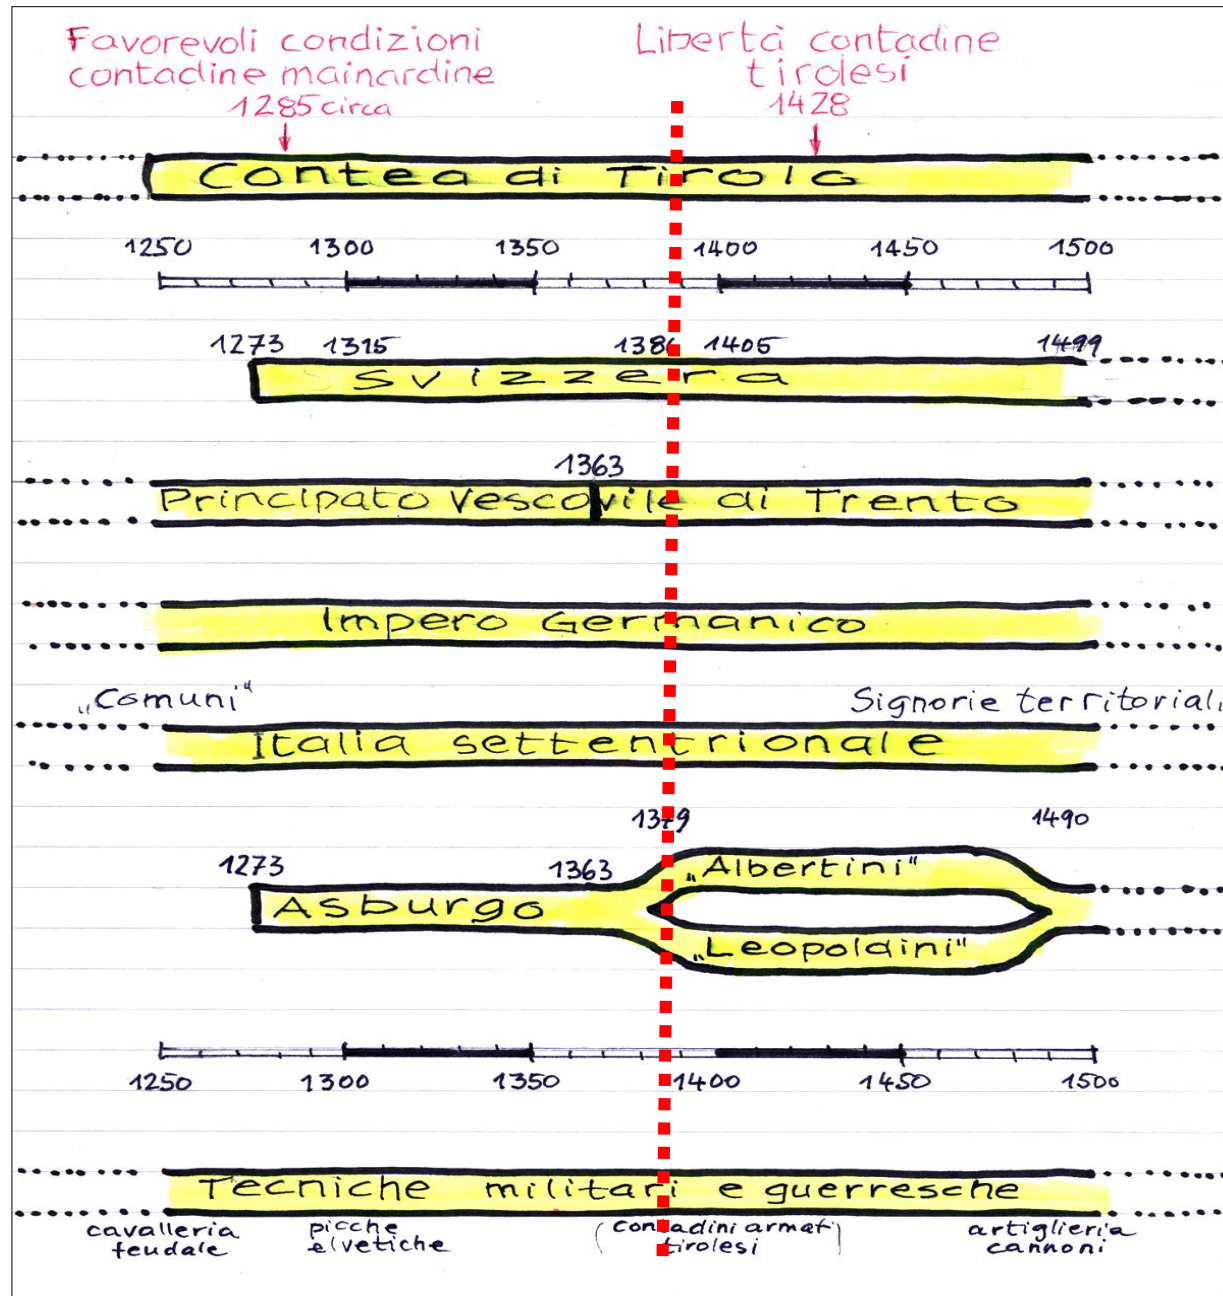 Favorevoli condizioni
contadine mainardine
1285 circa
Libertà contadine
tirolesi
1428
Contea di Tirolo
1250 1300 1350 1400 1450 1500
1273 1315 138 1405 1499
Svizzera
1363
Principato Vescovile di Trento
Impero Germanico
„Comuni“ Signorie territoriali
Italia settentrionale
1379 1490
1273 1363
„Albertini“
Asburgo
„Leopoldini“
1250 1300 1350 1400 1450 1500
Tecniche militari e guerresche
cavalleria
feudale
picche
elvetiche
(contadini armati
tirolesi)
artiglieria
cannoni